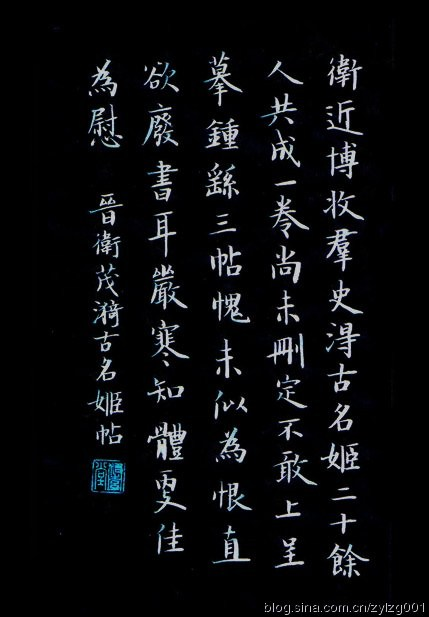 衛近博收羣史淂古名姬二十餘
人共成一卷尚未刪定不敢上呈
摹鍾繇三帖愧未似為恨直
欲廢書耳嚴寒知體更佳
為慰 晉衛茂漪古名姬帖
blog.sina.com.cn/zylzg001